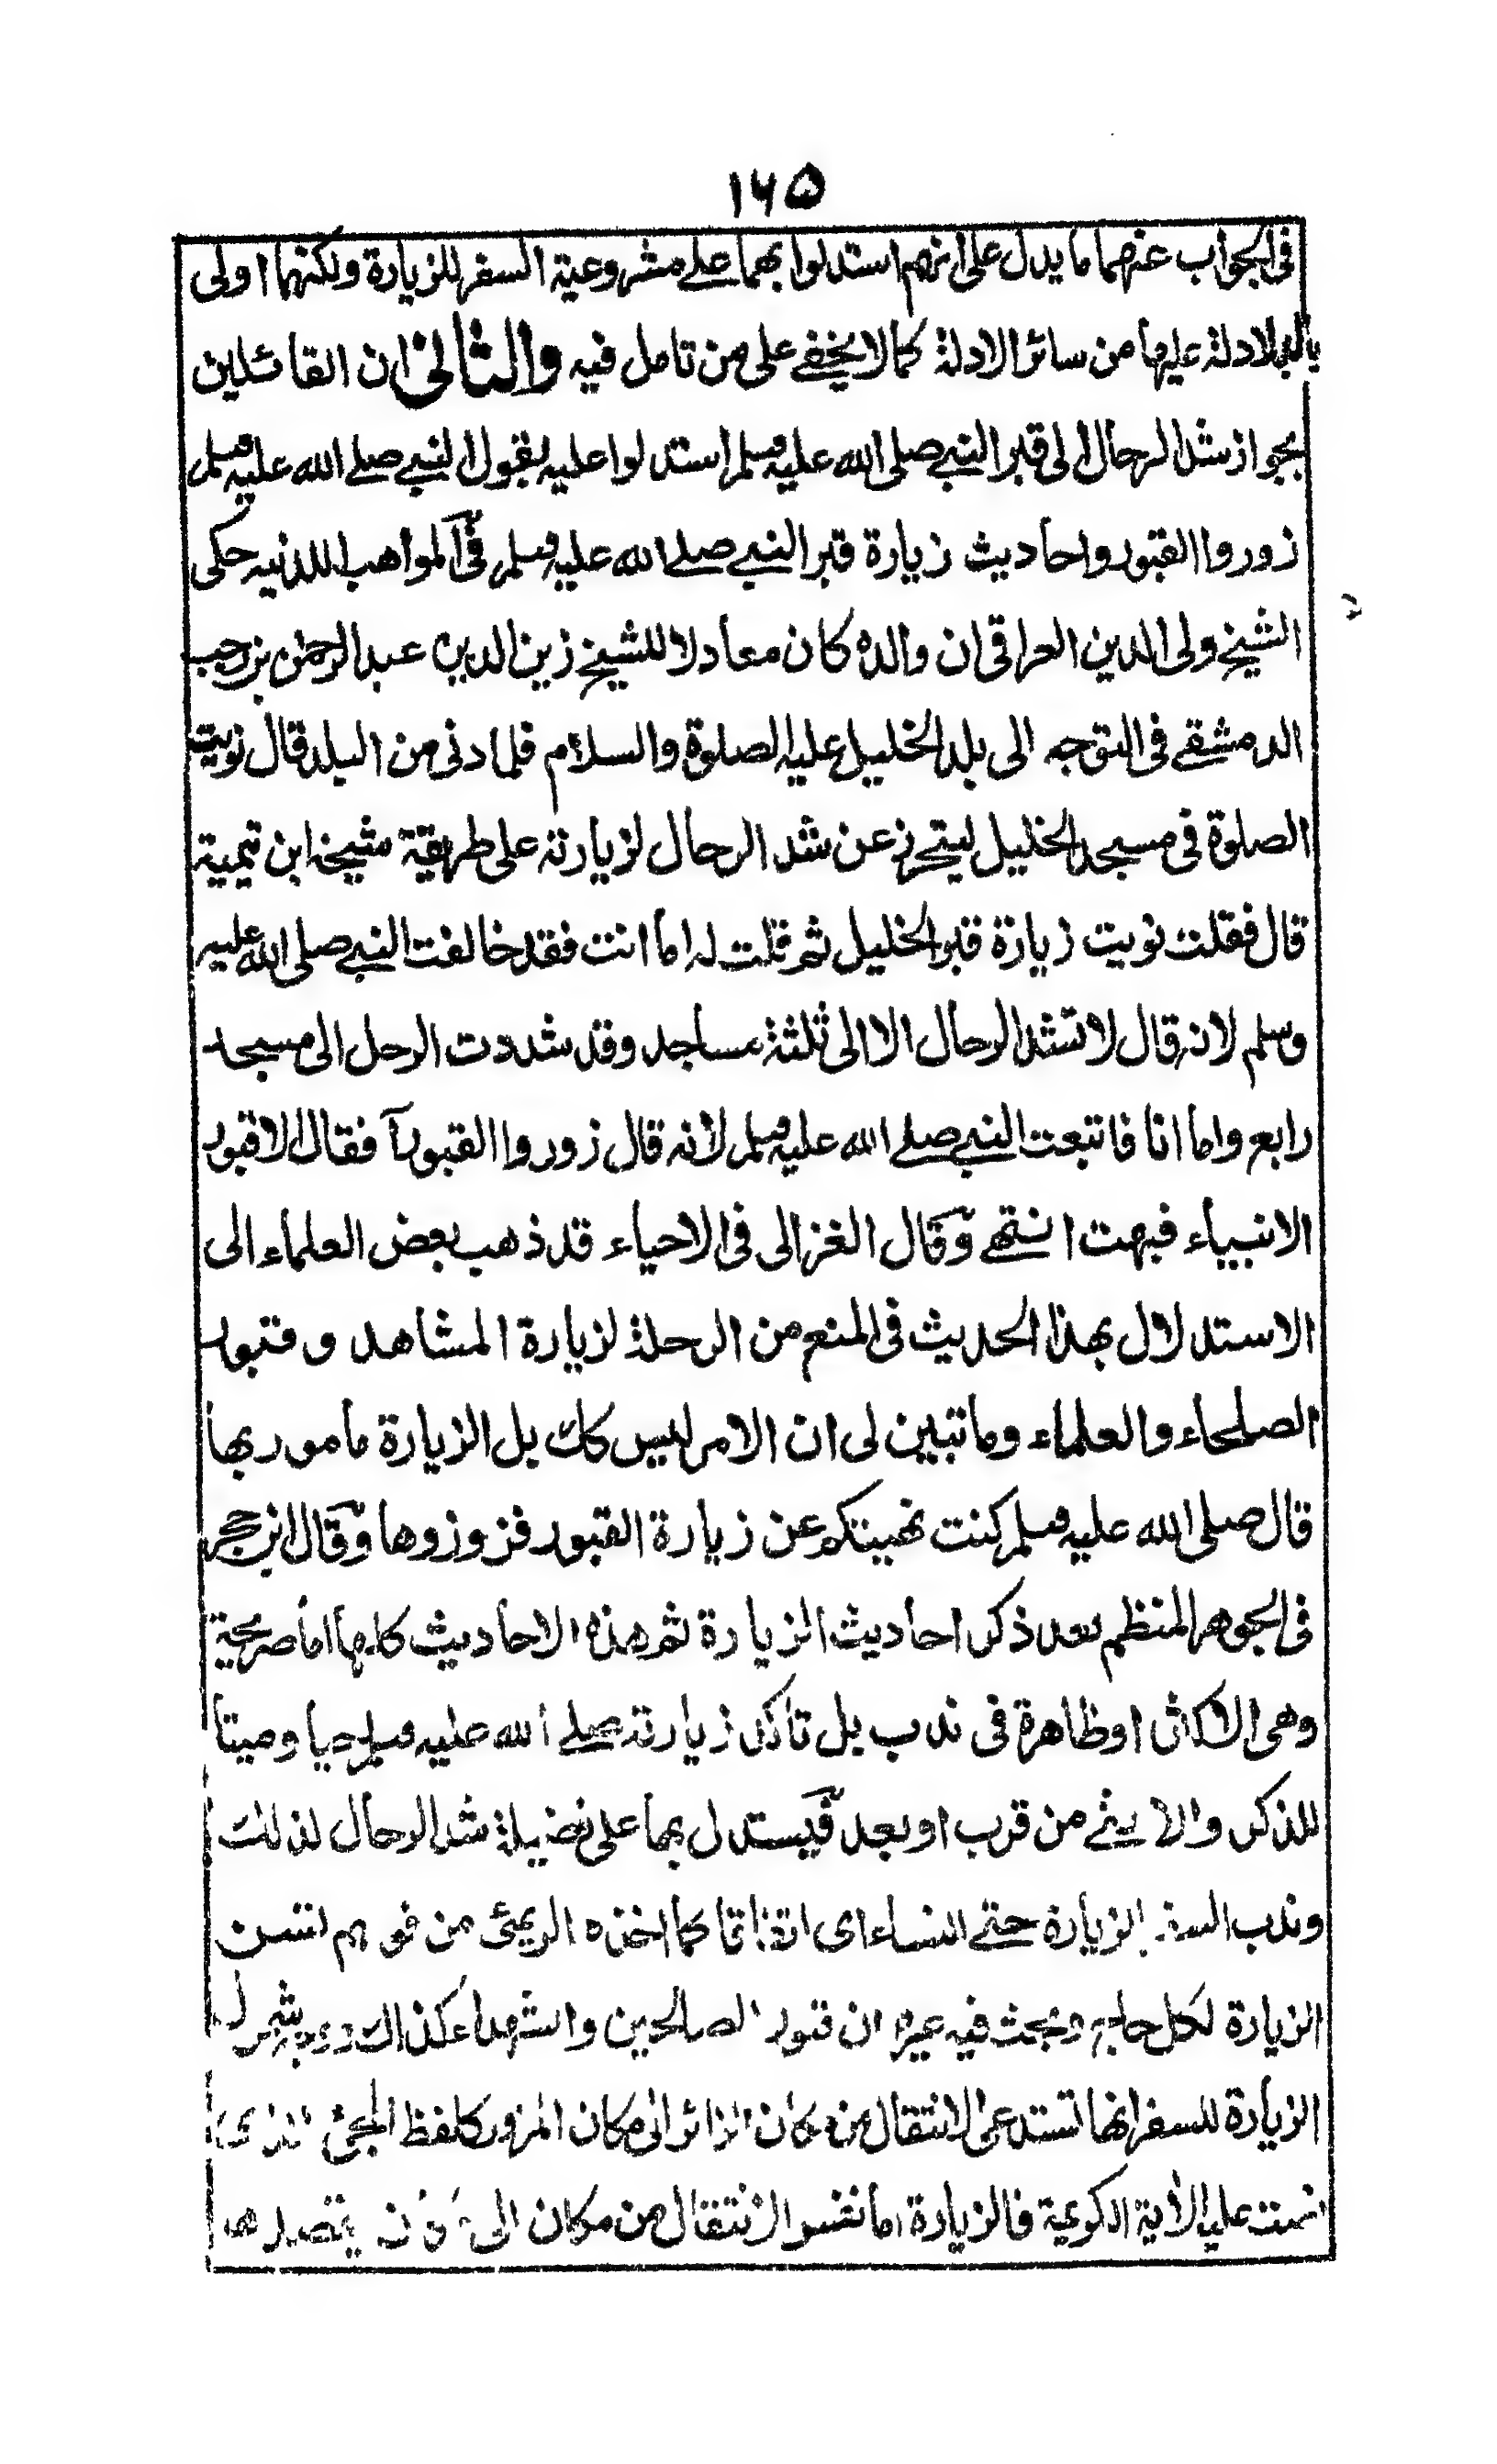 ١٦٥
فى الجواب عنهما ما يدل على انهم استدلوا بهما على مشروعية السفر للزيارة ولكنهما اولى
بالدلالة عليها من سائر الادلة كما لا يخفى على من تامل فيه والثانى ان القائلين
بجواز شد الرحال الى قبر النبى صلى الله عليه وسلم استدلوا عليه بقول النبى صلى الله عليه وسلم
زوروا القبور واحاديث زيارة قبر النبى صلى الله عليه وسلم فى المواهب اللدنيه حكى
الشيخ ولى الدين العراقى ان والده كان معادلا للشيخ زين الدين عبد الرحمن بن رجب
الدمشقى فى التوجه الى بلد الخليل عليه الصلوة والسلام فلما دنى من البلد قال نويت
الصلوة فى مسجد الخليل ليتحرز عن شد الرحال لزيارته على طريقة شيخه ابن تيمية
قال فقلت نويت زيارة قبر الخليل ثم قلت له اما انت فقد خالفت النبى صلى الله عليه
وسلم لانه قال لا تشد الرحال الا الى ثلثة مساجد وقد شددت الرحل الى مسجد
رابع واما انا فاتبعت النبى صلى الله عليه وسلم لانه قال زوروا القبور آفقال الا قبور
الانبياء فبهت انتهى وقال الغزالى فى الاحياء قد ذهب بعض العلماء الى
الاستدلال بهذا الحديث فى المنع من الرحلة لزيارة المشاهد وقبور
الصلحاء والعلماء وما تبين لى ان الامر ليس كك بل الزيارة مأمور بها
قال صلى الله عليه وسلم كنت نهيتكم عن زيارة القبور فزوروها وقال ابن حجر
فى الجوهر المنظم بعد ذكر احاديث الزيارة ثم هذه الاحاديث كلها اما صريحة
وهى الاكثر او ظاهرة فى ندب بل تاكد زيارته صلى الله عليه وسلم حيا وميتا
للذكر والانثى من قرب او بعد فيستدل بها على فضيلة شد الرحال لذلك
وندب السفر للزيارة حتى للنساء اى اتفاقا كما اخذه الريمى من قولهم تسن
الزيارة لكل حاج وبحث فيه غيره ان قبور الصالحين والشهداء كذلك ووجه شمول
الزيارة للسفر انها تستدعى الانتقال من مكان الزائر الى مكان المزور كلفظ المجئ الذى
نصت عليه الآية الكريمة فالزيارة اما نفس الانتقال من مكان الى مكان يقصدها